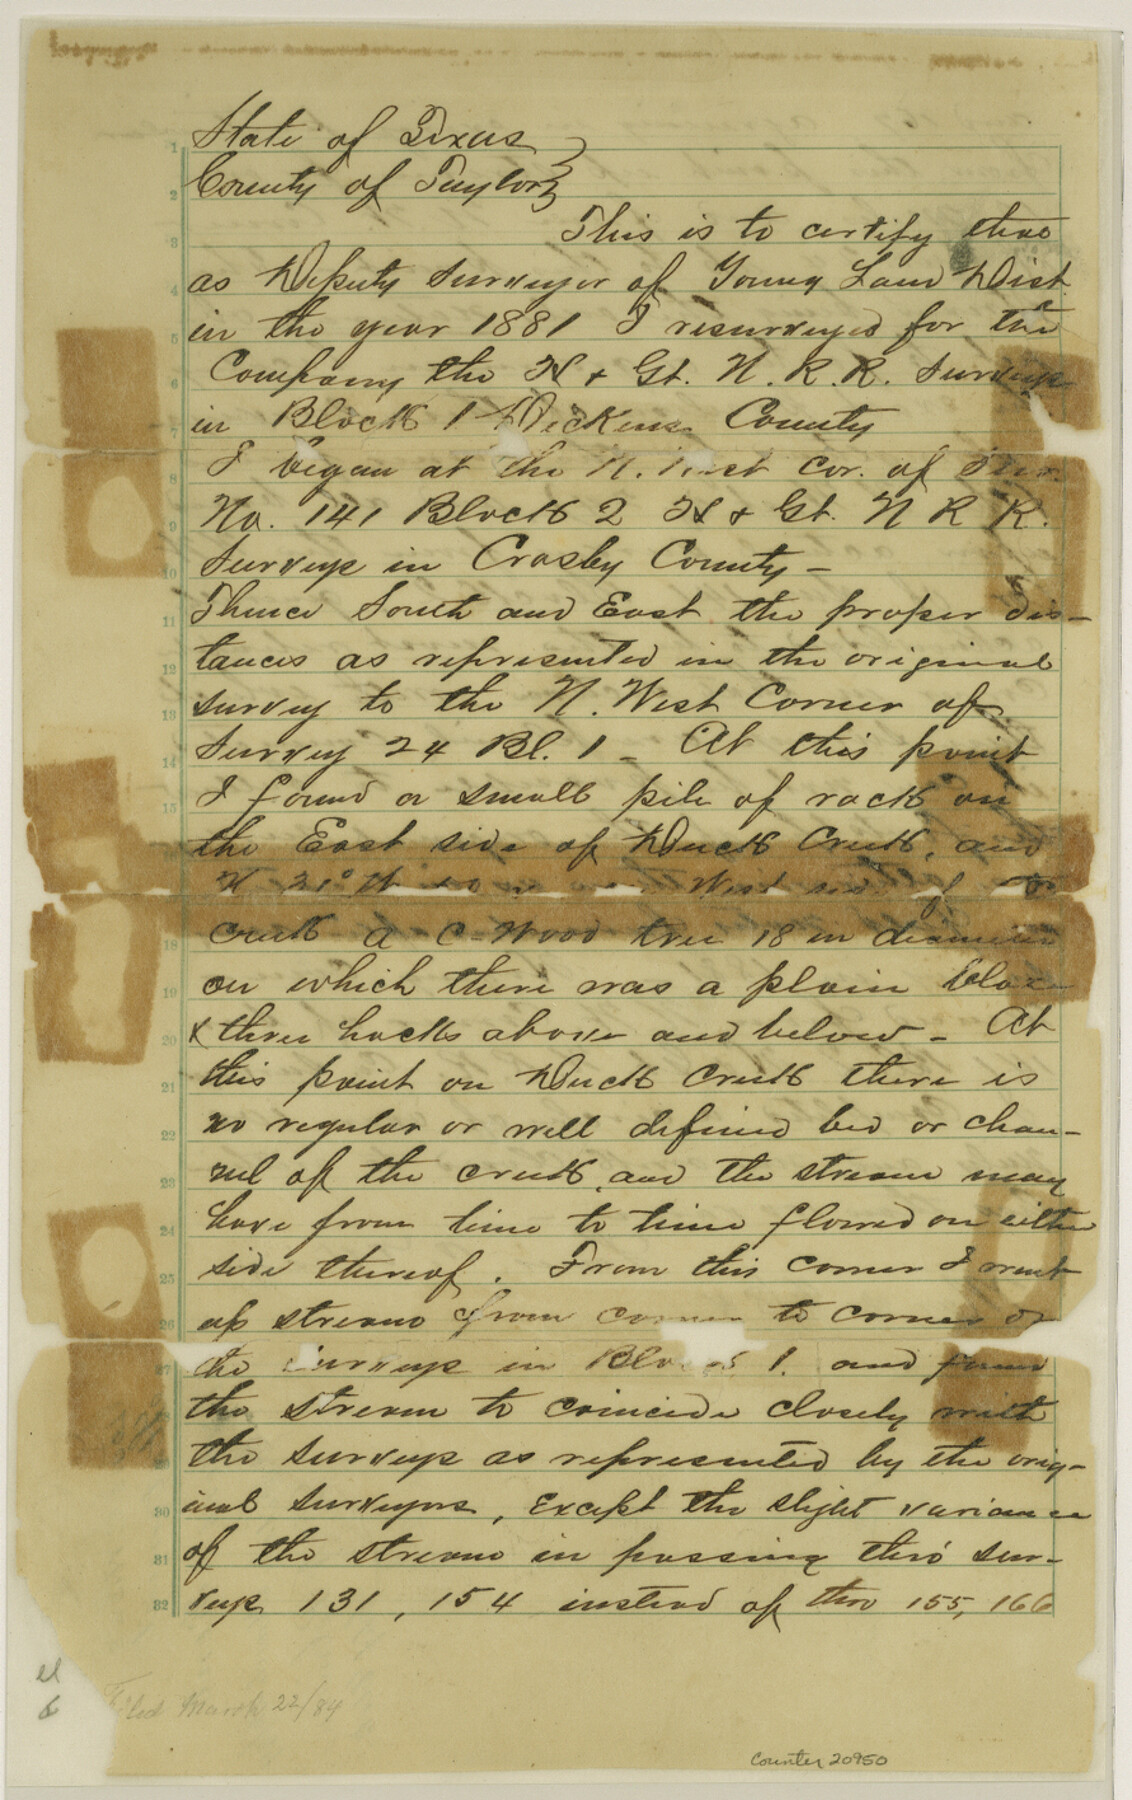 State of Texas
County of Taylor
This is to certify that
as Deputy Surveyor of Young Land Dist.
in the year 1881 I resurveyed for the
Company the H & Gt. N. R. R. Surveys
in Block 1 Dickens County
I began at the N. West cor. of Sur.
No. 141 Block 2 H & Gt. N R R.
Surveys in Crosby County -
Thence South and East the proper dis-
tances as represented in the original
survey to the N. West Corner of
Survey 24 Bl. 1 - At this point
I found a small pile of rock on
the East side of Duck Creek, and
N 21° W West side of
creek a C-Wood tree 18 in diameter
on which there was a plain blaze
& three hacks above and below - At
this point on Duck Creek there is
no regular or well defined bed or chan-
nel of the creek, and the stream may
have from time to time flowed on either
side thereof. From this corner I went
up stream from corner to corner of
the Surveys in Block 1. and found
the stream to coincide closely with
the surveys as represented by the orig-
inal surveyors, except the slight variance
of the stream in passing thro' sur-
veys 131, 154 instead of thro 155, 166
Filed March 22/84
Counter 20950